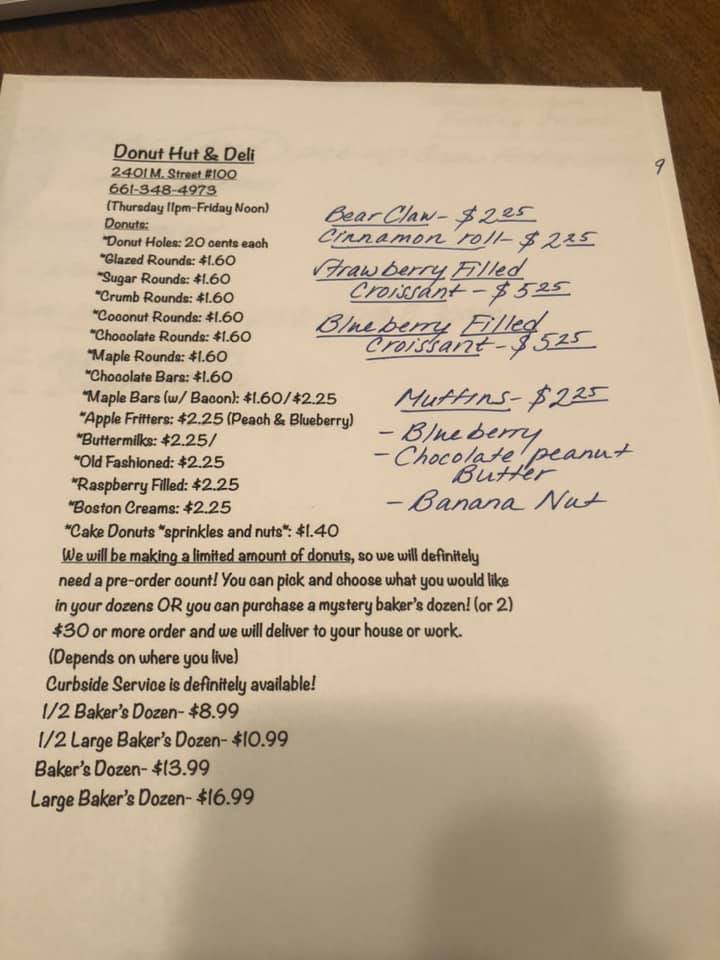 Donut Hut & Deli
2401 M. Street #100
661-348-4973
(Thursday 11pm-Friday Noon)
Donuts:
*Donut Holes: 20 cents each
*Glazed Rounds: $1.60
*Sugar Rounds: $1.60
*Crumb Rounds: $1.60
*Coconut Rounds: $1.60
*Chocolate Rounds: $1.60
*Maple Rounds: $1.60
*Chocolate Bars: $1.60
*Maple Bars (w/ Bacon): $1.60/$2.25
*Apple Fritters: $2.25 (Peach & Blueberry)
*Buttermilks: $2.25/
*Old Fashioned: $2.25
*Raspberry Filled: $2.25
*Boston Creams: $2.25
*Cake Donuts *sprinkles and nuts*: $1.40
We will be making a limited amount of donuts, so we will definitely
need a pre-order count! You can pick and choose what you would like
in your dozens OR you can purchase a mystery baker's dozen! (or 2)
$30 or more order and we will deliver to your house or work.
(Depends on where you live)
Curbside Service is definitely available!
1/2 Baker's Dozen- $8.99
1/2 Large Baker's Dozen- $10.99
Baker's Dozen- $13.99
Large Baker's Dozen- $16.99
9
Bear Claw- $2.25
Cinnamon roll- $2.25
Strawberry Filled
Croissant - $5.25
Blueberry Filled
Croissant - $5.25
Muffins- $2.25
- Blueberry
- Chocolate peanut
Butter
- Banana Nut